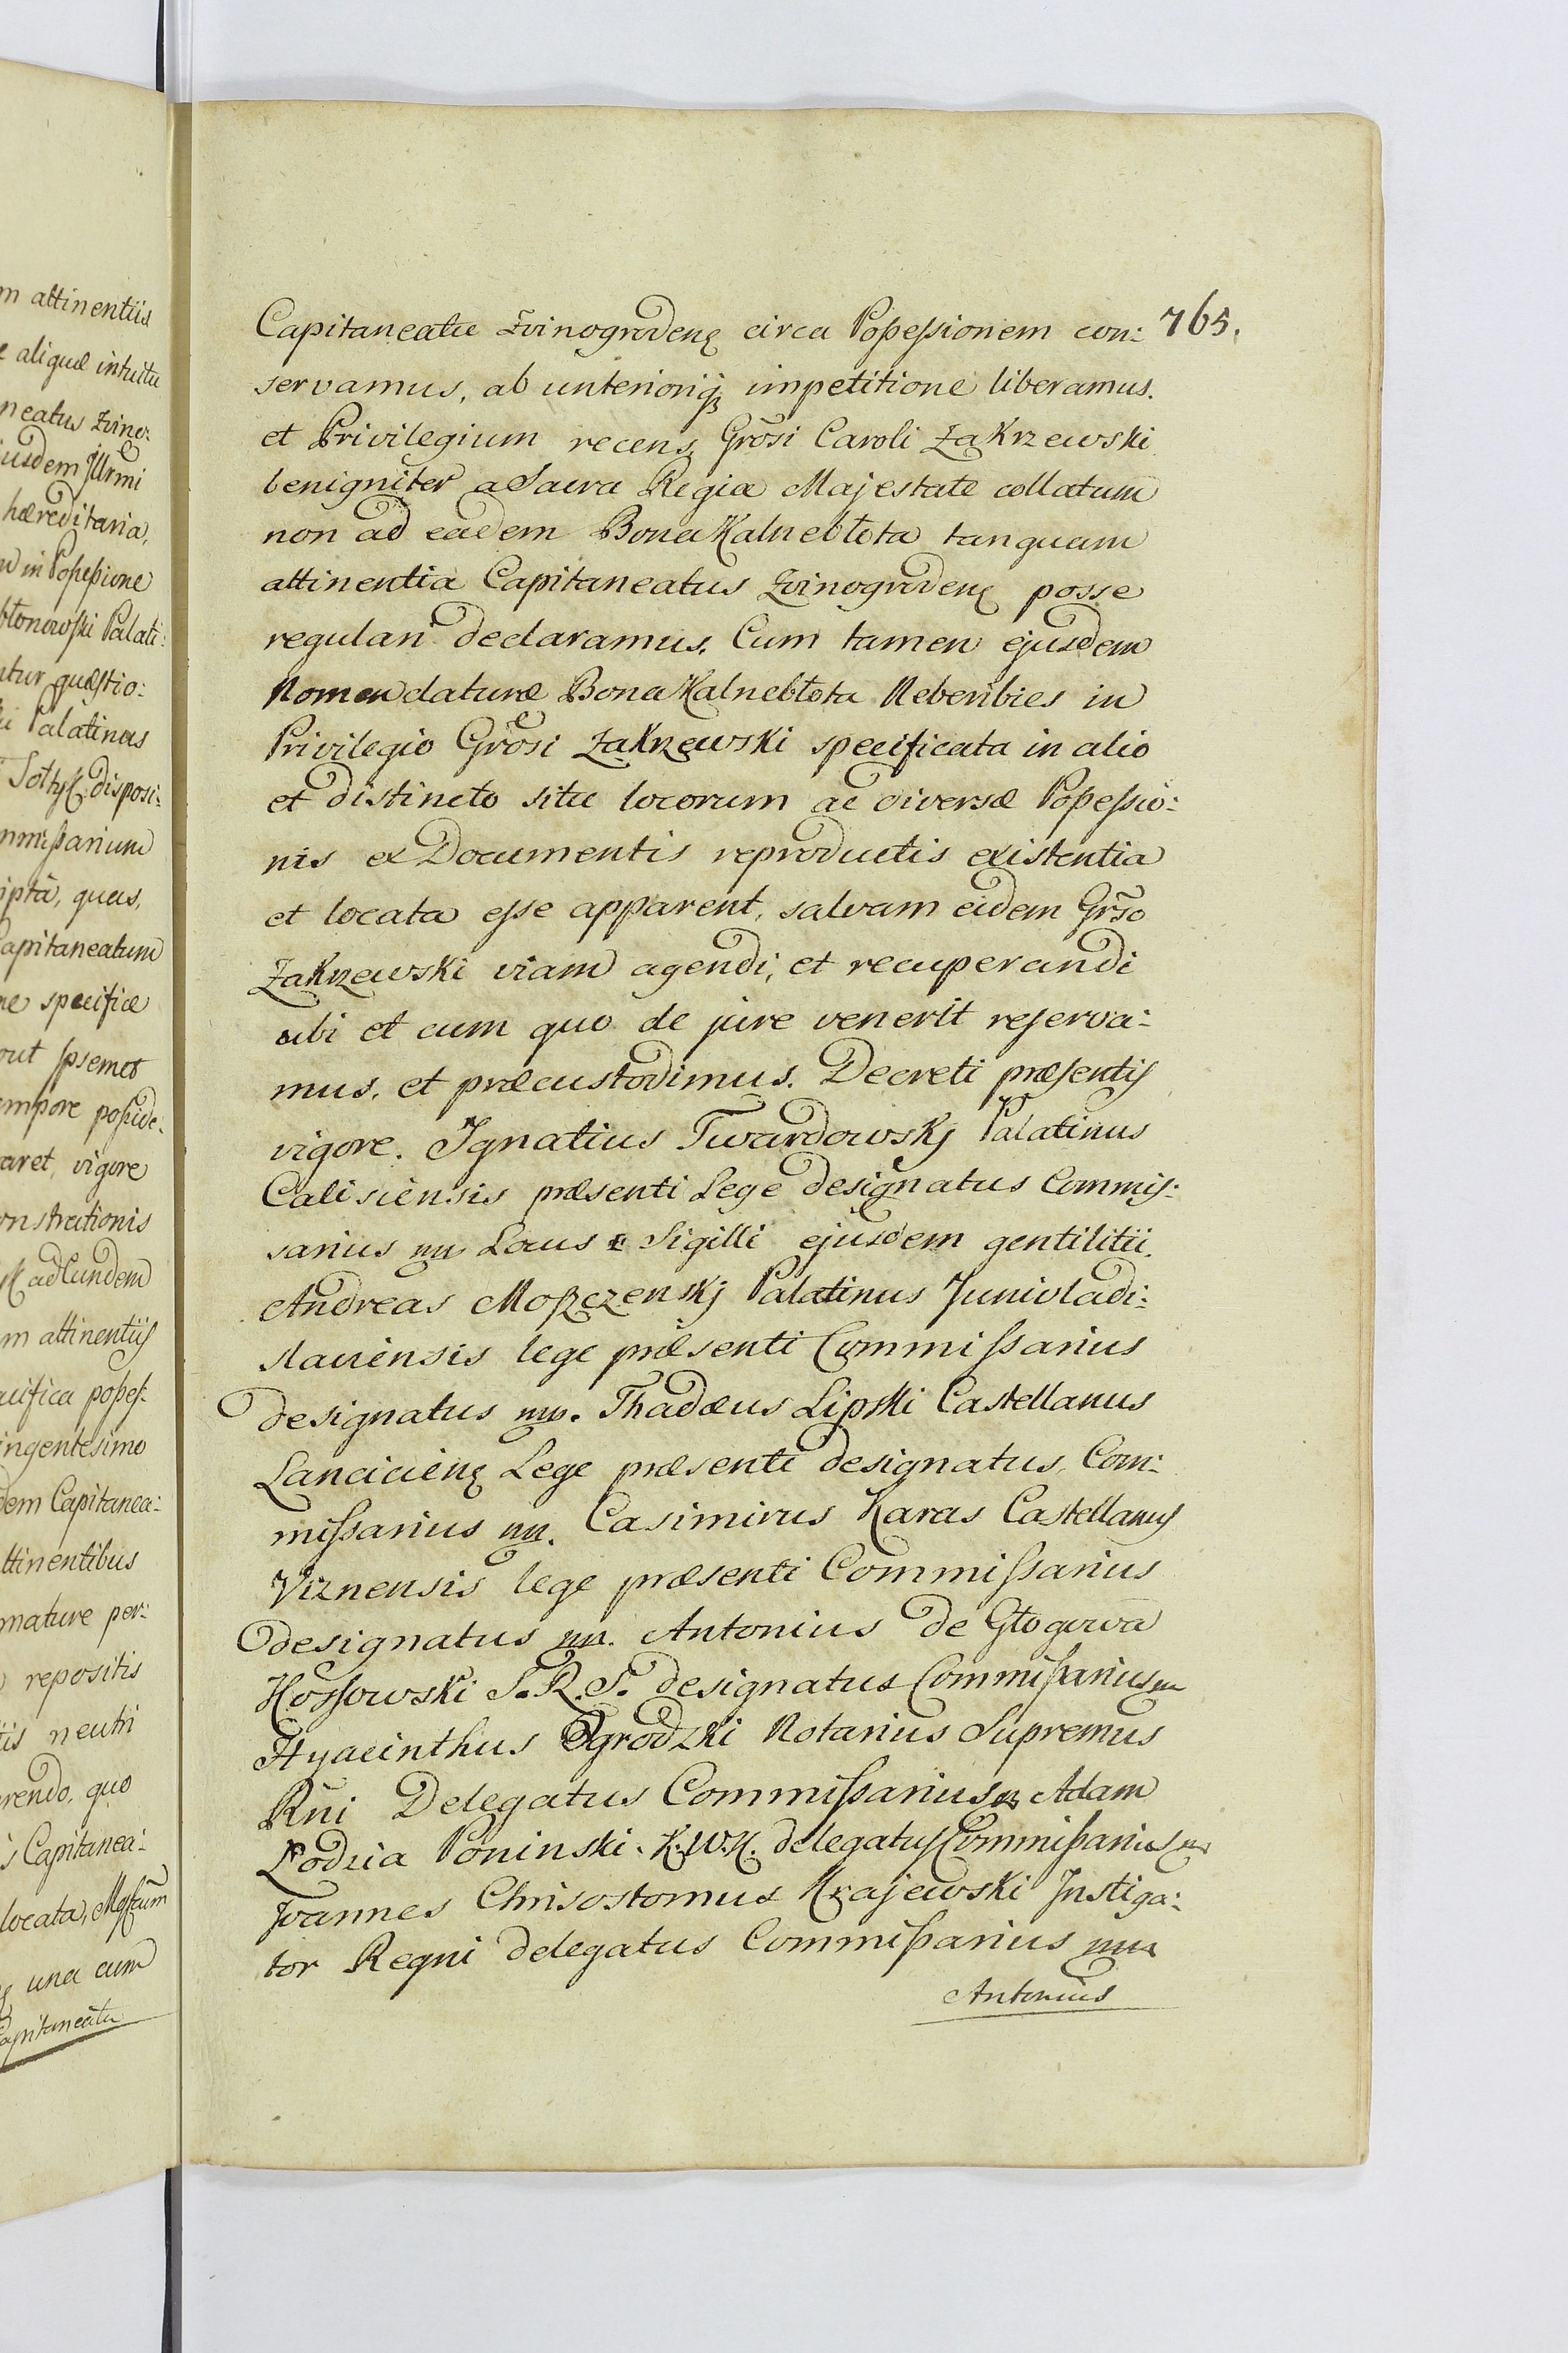 m attinentiis
e aliquæ intuitu
neatus Zvino:
jusdem Jllrmi
hæreditaria,
w in Poßeßione
błonowski Palati:
ntur quæstio:
ki Palatinus
Sołtyk disposi:
mmißarium
ipta, quas,
Capitaneatum
ne specificæ
out Jpsemet
empore poßide:
aret, vigore
onstrationis
k ad Eundem
m attinentiis
acifica poßeß:
ingentesimo
dem Capitanea:
ttinentibus
mature per:
repositis
tis neutri
rendo, quo
s Capitanea:
locata, Mostum
una cum
Capitaneatu
765.
Capitaneatu Zvinogrodenę circa Poßeßionem con:
servamus, ab unterioriq impetitione liberamus.
et Privilegium recens, Grosi Caroli Zakrzewski
benigniter a Sacra Regia Majestate collatum
non ad eadem Bona Kalnebłota tanquam
attinentia Capitaneatus Zvinogrodenę posse
regulari declaramus. Cum tamen ejusdem
Nomendaturæ Bona Kalnebłota Neberibies in
Privilegio Grosi Zakrzewski specificata in alio
et distincto situ locorum ac diversæ Poßeßio:
nis ex Documentis reproductis existentia
et locata esse apparent, salvam eidem Grso
Zakrzewski viam agendi, et recuperandi
ubi et cum quo de jure venerit reserva:
mus, et præcustodimus. Decreti præsentis
vigore. Ignatius Twardowskj Palatinus
Calisiensis præsenti Lege designatus Commis:
sarius mp Locus Sigilli ejusdem gentilitii.
Andreas Moßczenskj Palatinus Junivladi:
slaviensis lege præsenti Commißarius
designatus mp. Thadæus Lipski Castellanus
Lancicienę Lege præsenti designatus, Com:
mißarius mp. Casimirus Karas Castellanus
Viznensis lege præsenti Commißarius
designatus mp. Antonius de Głogowa
Koßowski S. R. S. designatus Commißarius mp
Hyacinthus Ogrodzki Notarius Supremus
Rñi Delegatus Commißarius mp Adam
Łodzia Poninski. K. W. K. delegatus Commißarius mp
Joannes Chrisostomus Krajewski Instiga:
tor Regni delegatus Commißarius mp
Antonius